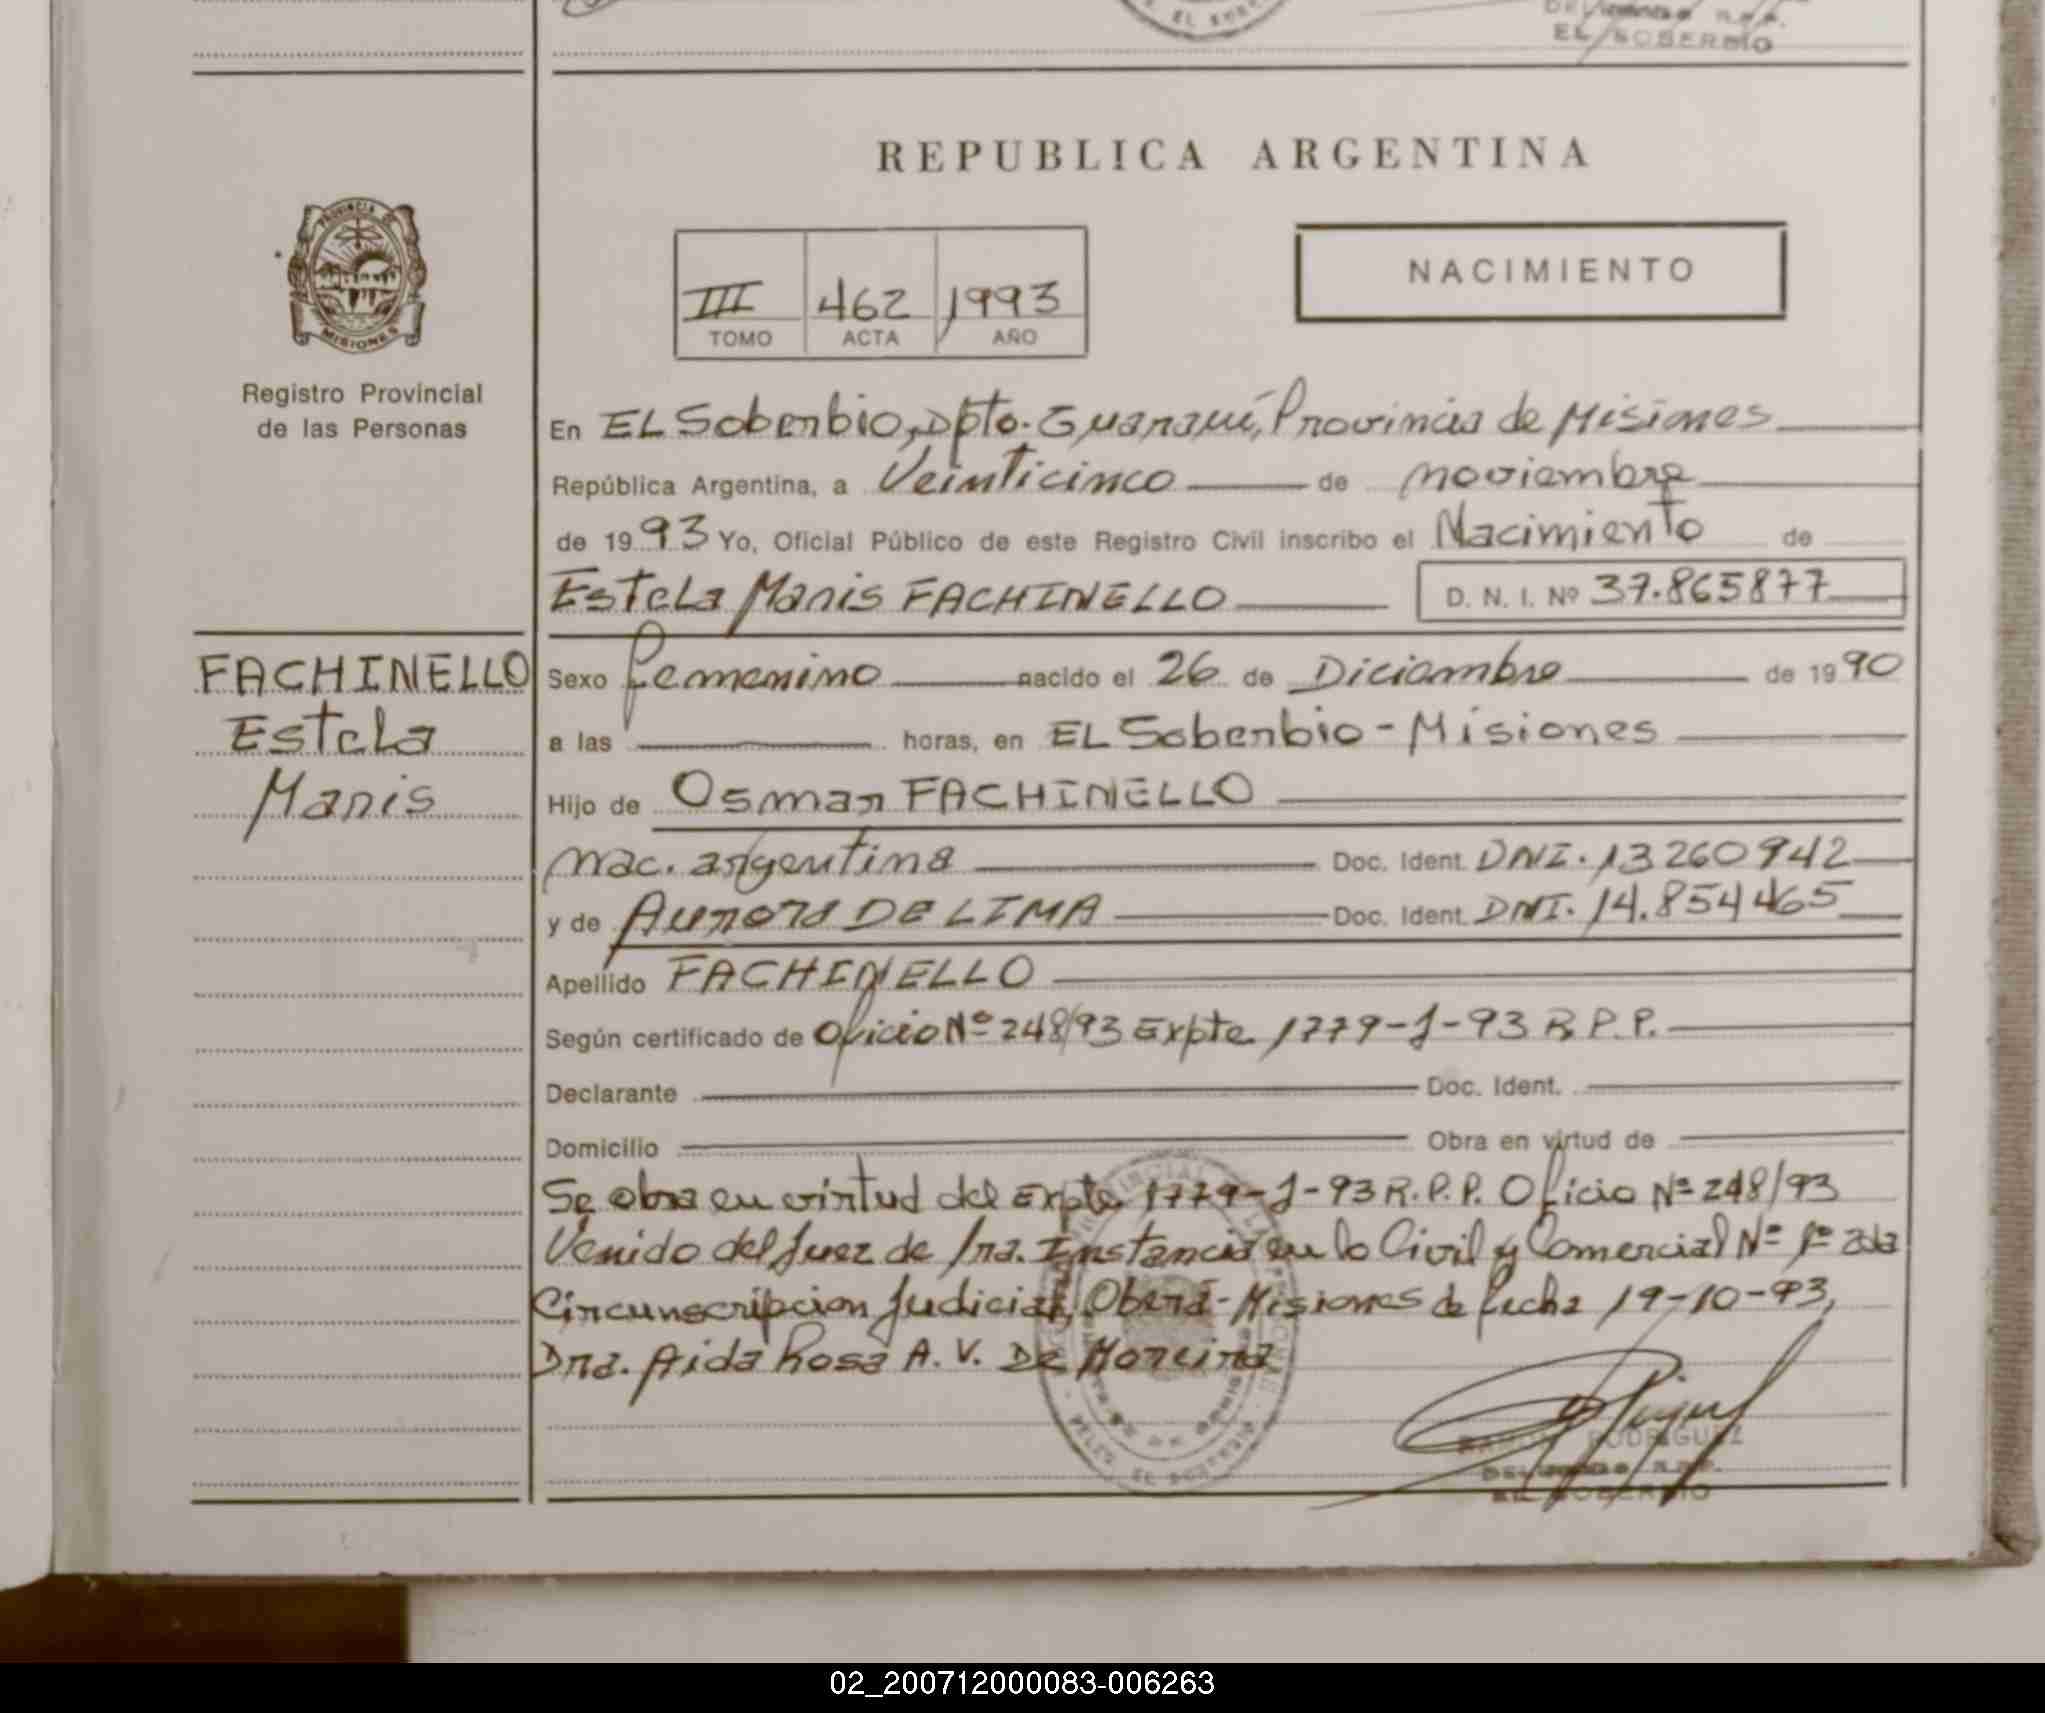 EL SOBERBIO
REPUBLICA ARGENTINA
PROVINCIA DE
MISIONES
Registro Provincial
de las Personas
III 462 1993
TOMO ACTA AÑO
NACIMIENTO
En EL Soberbio, Dpto. Guaraní, Provincia de Misiones
República Argentina, a Veinticinco de noviembre
de 1993 Yo, Oficial Público de este Registro Civil inscribo el Nacimiento de
Estela Maris FACHINELLO D. N. I. Nº 37.865877
FACHINELLO
Estela
Maris
Sexo femenino nacido el 26 de Diciembre de 1990
a las horas, en EL Soberbio - Misiones
Hijo de Osmar FACHINELLO
Nac. argentina Doc. Ident. DNI. 13260942
y de Aurora DE LIMA Doc. Ident. DNI. 14.854465
Apellido FACHINELLO
Según certificado de Oficio Nº 248/93 Expte 1779-J-93 R.P.P.
Declarante Doc. Ident.
Domicilio Obra en virtud de
Se obra en virtud del Expte 1779-J-93 R.P.P. Oficio Nº 248/93
Venido del Juez de 1ra. Instancia en lo Civil y Comercial Nº 1º 2da
Circunscripcion Judicial, Oberá - Misiones de fecha 19-10-93,
Dra. Aida Rosa A. V. De Moreira
RAMON RODRIGUEZ
DELEGADO R.P.P.
EL SOBERBIO
02_200712000083-006263